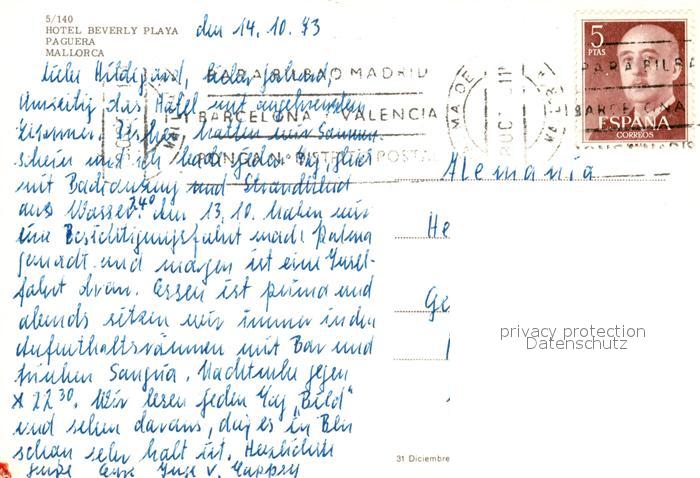 5/140
HOTEL BEVERLY PLAYA
PAGUERA
MALLORCA
den 14.10.73
Liebe Hildegard, lieber
Umseitig das Hotel mit
Zimmer. Bisher hatten wir Sonnen-
schein und ich bade jeden Tag, gleich
mit Badeanzug und Strandkleid
ans Wasser 24°. Am 13.10. haben wir
eine Besichtigungsfahrt nach Palma
gemacht und morgen ist eine Insel-
fahrt dran. Essen ist prima und
abends sitzen wir immer in den
Aufenthaltsräumen mit Bar und
trinken Sangria. Nachtruhe gegen
22 30. Wir lesen jeden Tag „Bild"
und sehen daraus, daß es in Ber
schon sehr kalt ist. Herzlichste
Grüße Eure
PARA BILBAO MADRID
BARCELONA VALENCIA
PONGA Nº DISTRITO POSTAL
5
PTAS
PARA BILBA
BARCELONA
ESPAÑA
CORREOS
Alemania
He
Ge
privacy protection
Datenschutz
31 Diciembre